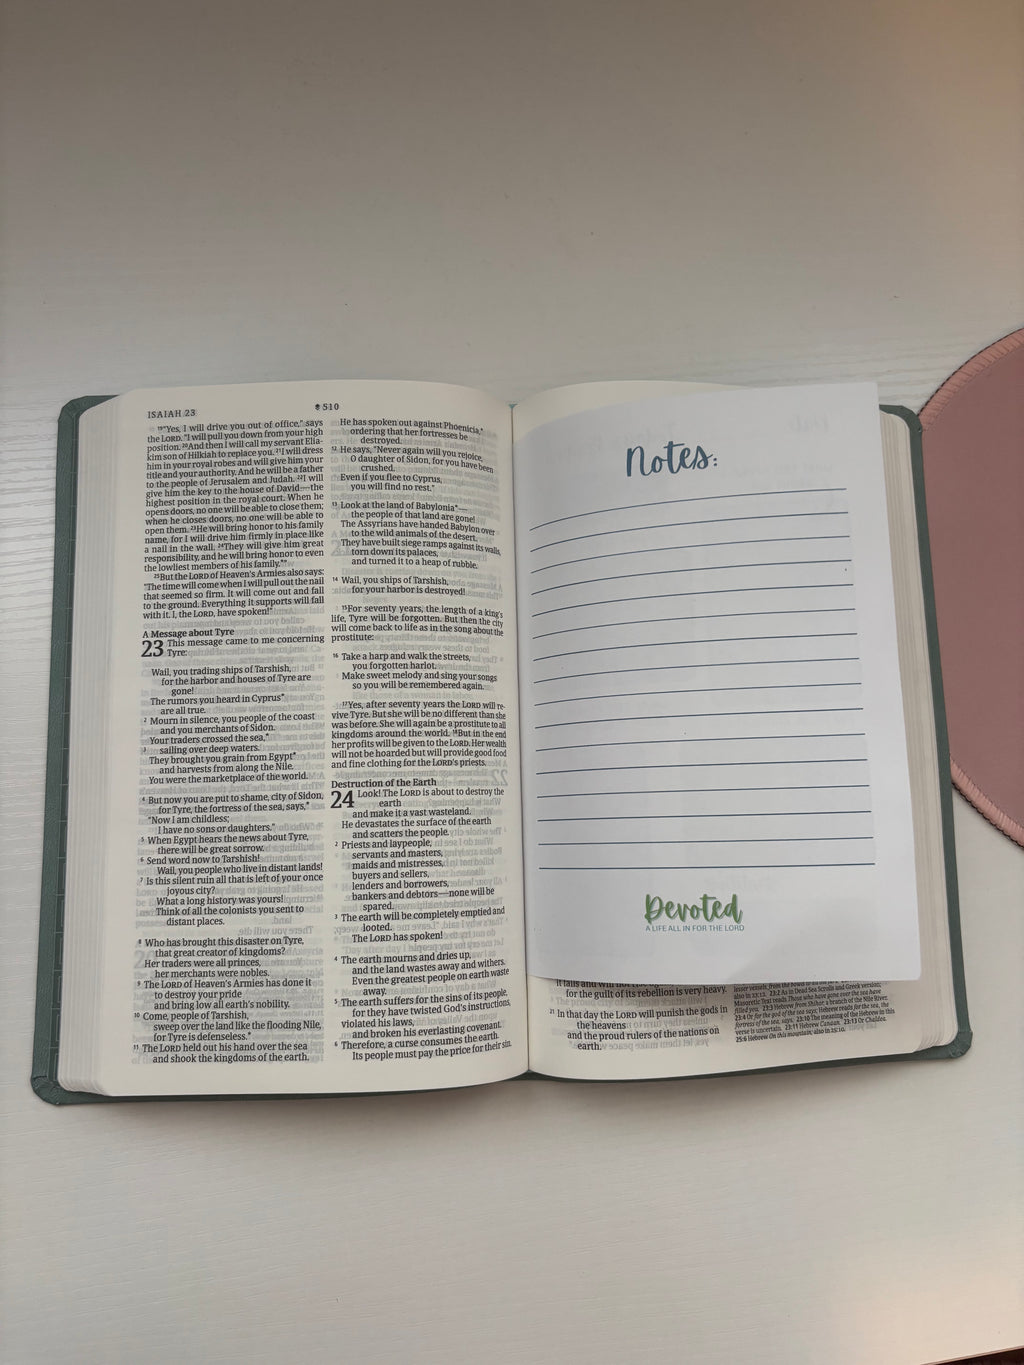 ISAIAH 23
510
19"Yes, I will drive you out of office," says
the LORD. "I will pull you down from your high
position. 20And then I will call my servant Elia-
kim son of Hilkiah to replace you. 21I will dress
him in your royal robes and will give him your
title and your authority. And he will be a father
to the people of Jerusalem and Judah. 22I will
give him the key to the house of David—the
highest position in the royal court. When he
opens doors, no one will be able to close them;
when he closes doors, no one will be able to
open them. 23He will bring honor to his family
name, for I will drive him firmly in place like
a nail in the wall. 24They will give him great
responsibility, and he will bring honor to even
the lowliest members of his family.*"
25But the LORD of Heaven's Armies also says:
"The time will come when I will pull out the nail
that seemed so firm. It will come out and fall
to the ground. Everything it supports will fall
with it. I, the LORD, have spoken!"
A Message about Tyre
23 This message came to me concerning
Tyre:
Wail, you trading ships of Tarshish,
for the harbor and houses of Tyre are
gone!
The rumors you heard in Cyprus*
are all true.
2 Mourn in silence, you people of the coast
and you merchants of Sidon.
Your traders crossed the sea,*
3 sailing over deep waters.
They brought you grain from Egypt*
and harvests from along the Nile.
You were the marketplace of the world.
4 But now you are put to shame, city of Sidon,
for Tyre, the fortress of the sea, says,*
"Now I am childless;
I have no sons or daughters."
5 When Egypt hears the news about Tyre,
there will be great sorrow.
6 Send word now to Tarshish!
Wail, you people who live in distant lands!
7 Is this silent ruin all that is left of your once
joyous city?
What a long history was yours!
Think of all the colonists you sent to
distant places.
8 Who has brought this disaster on Tyre,
that great creator of kingdoms?
Her traders were all princes,
her merchants were nobles.
9 The LORD of Heaven's Armies has done it
to destroy your pride
and bring low all earth's nobility.
10 Come, people of Tarshish,
sweep over the land like the flooding Nile,
for Tyre is defenseless.*
11 The LORD held out his hand over the sea
and shook the kingdoms of the earth.
He has spoken out against Phoenicia,*
ordering that her fortresses be
destroyed.
12 He says, "Never again will you rejoice,
O daughter of Sidon, for you have been
crushed.
Even if you flee to Cyprus,
you will find no rest."
13 Look at the land of Babylonia*—
the people of that land are gone!
The Assyrians have handed Babylon over
to the wild animals of the desert.
They have built siege ramps against its walls,
torn down its palaces,
and turned it to a heap of rubble.
14 Wail, you ships of Tarshish,
for your harbor is destroyed!
15For seventy years, the length of a king's
life, Tyre will be forgotten. But then the city
will come back to life as in the song about the
prostitute:
16 Take a harp and walk the streets,
you forgotten harlot.
Make sweet melody and sing your songs
so you will be remembered again.
17Yes, after seventy years the LORD will re-
vive Tyre. But she will be no different than she
was before. She will again be a prostitute to all
kingdoms around the world. 18But in the end
her profits will be given to the LORD. Her wealth
will not be hoarded but will provide good food
and fine clothing for the LORD's priests.
Destruction of the Earth
24 Look! The LORD is about to destroy the
earth
and make it a vast wasteland.
He devastates the surface of the earth
and scatters the people.
2 Priests and laypeople,
servants and masters,
maids and mistresses,
buyers and sellers,
lenders and borrowers,
bankers and debtors—none will be
spared.
3 The earth will be completely emptied and
looted.
The LORD has spoken!
4 The earth mourns and dries up,
and the land wastes away and withers.
Even the greatest people on earth waste
away.
5 The earth suffers for the sins of its people,
for they have twisted God's instructions,
violated his laws,
and broken his everlasting covenant.
6 Therefore, a curse consumes the earth.
Its people must pay the price for their sin.
Notes:
Devoted
A LIFE ALL IN FOR THE LORD
it falls and will not
for the guilt of its rebellion is very heavy.
21 In that day the LORD will punish the gods in
the heavens
and the proud rulers of the nations on
earth.
also in 22:12. 23:2 As in Dead Sea Scrolls and Greek version;
Masoretic Text reads Those who have gone over the sea have
filled you. 23:3 Hebrew from Shihor, a branch of the Nile River.
23:4 Or for the god of the sea says; Hebrew reads for the sea, the
fortress of the sea, says. 23:10 The meaning of the Hebrew in this
verse is uncertain. 23:11 Hebrew Canaan. 23:13 Or Chaldea.
25:6 Hebrew On this mountain; also in 25:10.